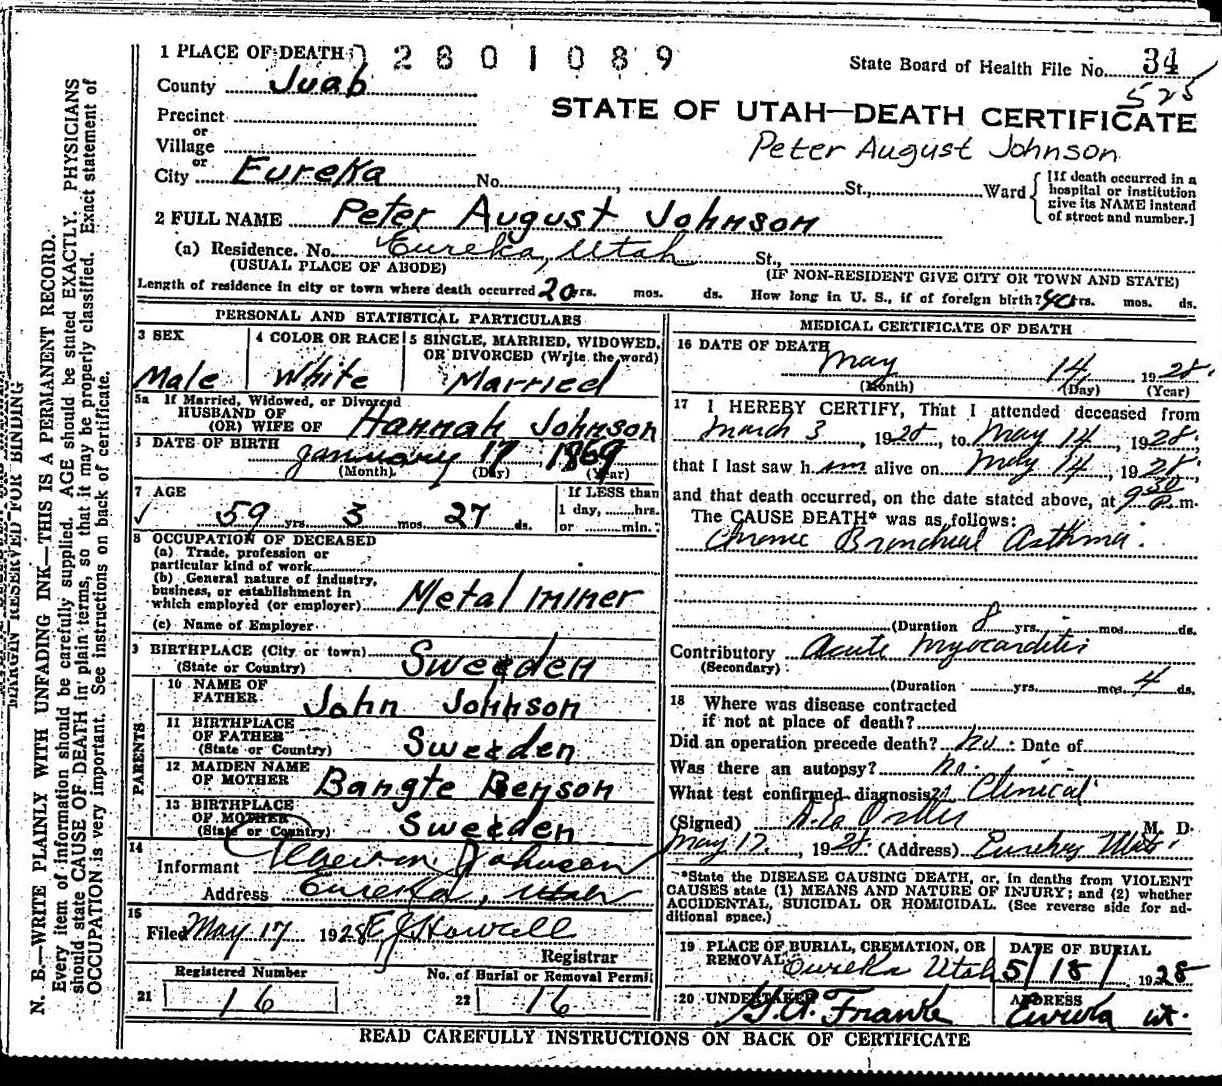 1 PLACE OF DEATH 02801089
State Board of Health File No. 34
525
County Juab
STATE OF UTAH—DEATH CERTIFICATE
Precinct
or
Village
Peter August Johnson
or
City Eureka No. , St., Ward
[If death occurred in a
hospital or institution
give its NAME instead
of street and number.]
2 FULL NAME Peter August Johnson
(a) Residence. No. Eureka, Utah St.,
(USUAL PLACE OF ABODE) (IF NON-RESIDENT GIVE CITY OR TOWN AND STATE)
Length of residence in city or town where death occurred 20 yrs. mos. ds. How long in U. S., if of foreign birth? 40 yrs. mos. ds.
PERSONAL AND STATISTICAL PARTICULARS
3 SEX
Male
4 COLOR OR RACE
White
5 SINGLE, MARRIED, WIDOWED,
OR DIVORCED (Write the word)
Married
5a If Married, Widowed, or Divorced
HUSBAND OF
(OR) WIFE OF Hannah Johnson
DATE OF BIRTH
January 17 1869
(Month) (Day) (Year)
7 AGE
59 yrs. 3 mos. 27 ds.
If LESS than
1 day, hrs.
or min.
8 OCCUPATION OF DECEASED
(a) Trade, profession or
particular kind of work
(b) General nature of industry,
business, or establishment in
which employed (or employer) Metal miner
(c) Name of Employer
9 BIRTHPLACE (City or town)
(State or Country) Sweeden
PARENTS
10 NAME OF
FATHER John Johnson
11 BIRTHPLACE
OF FATHER
(State or Country) Sweeden
12 MAIDEN NAME
OF MOTHER Bangte Benson
13 BIRTHPLACE
OF MOTHER
(State or Country) Sweeden
14
Informant Johnson
Address Eureka, Utah
15
Filed May 17 1928 E J Howell
Registrar
Registered Number
21 16
No. of Burial or Removal Permit
22 16
MEDICAL CERTIFICATE OF DEATH
16 DATE OF DEATH
May 14 1928.
(Month) (Day) (Year)
17 I HEREBY CERTIFY, That I attended deceased from
March 3, 1928, to May 14, 1928.
that I last saw him alive on May 14, 1928.
and that death occurred, on the date stated above, at 9 30 P. m.
The CAUSE DEATH* was as follows:
Chronic Bronchial Asthma.
(Duration 8 yrs. mos. ds.
Contributory Acute Myocarditis
(Secondary)
(Duration yrs. mos. 4 ds.
18 Where was disease contracted
if not at place of death?
Did an operation precede death? no. Date of
Was there an autopsy? no.
What test confirmed diagnosis? Clinical
(Signed) M. D.
May 17, 1928. (Address) Eureka, Utah.
*State the DISEASE CAUSING DEATH, or, in deaths from VIOLENT
CAUSES state (1) MEANS AND NATURE OF INJURY; and (2) whether
ACCIDENTAL, SUICIDAL OR HOMICIDAL. (See reverse side for ad-
ditional space.)
19 PLACE OF BURIAL, CREMATION, OR
REMOVAL
Eureka Utah
DATE OF BURIAL
5/18/ 1928
20 UNDERTAKER
G. A. Franke
ADDRESS
Eureka ut.
READ CAREFULLY INSTRUCTIONS ON BACK OF CERTIFICATE
MARGIN RESERVED FOR BINDING
N. B.—WRITE PLAINLY WITH UNFADING INK—THIS IS A PERMANENT RECORD.
Every item of information should be carefully supplied. AGE should be stated EXACTLY. PHYSICIANS
should state CAUSE OF DEATH in plain terms, so that it may be properly classified. Exact statement of
OCCUPATION is very important. See instructions on back of certificate.